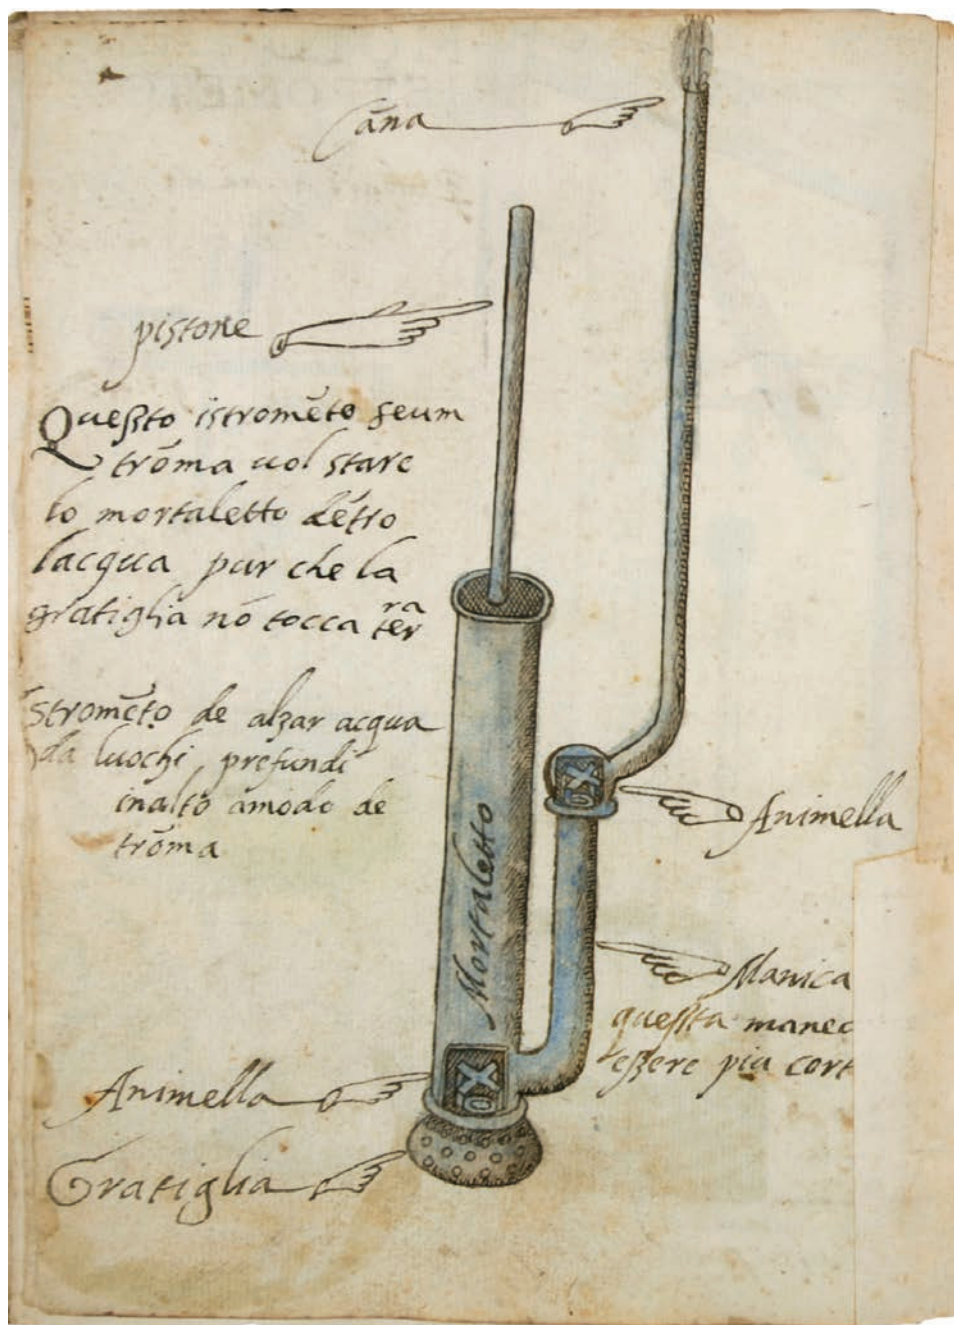 Cãna
pistone
Questo istromẽto seum
trõma uol stare
lo mortaletto dẽtro
lacqua pur che la
gratiglia nõ tocca ter
ra
Stromẽto de alzar acqua
da luochi prefundi
inalto ãmodo de
trõma
Mortaletto
Animella
Manica
questa manec
essere piu cort
Animella
Gratiglia